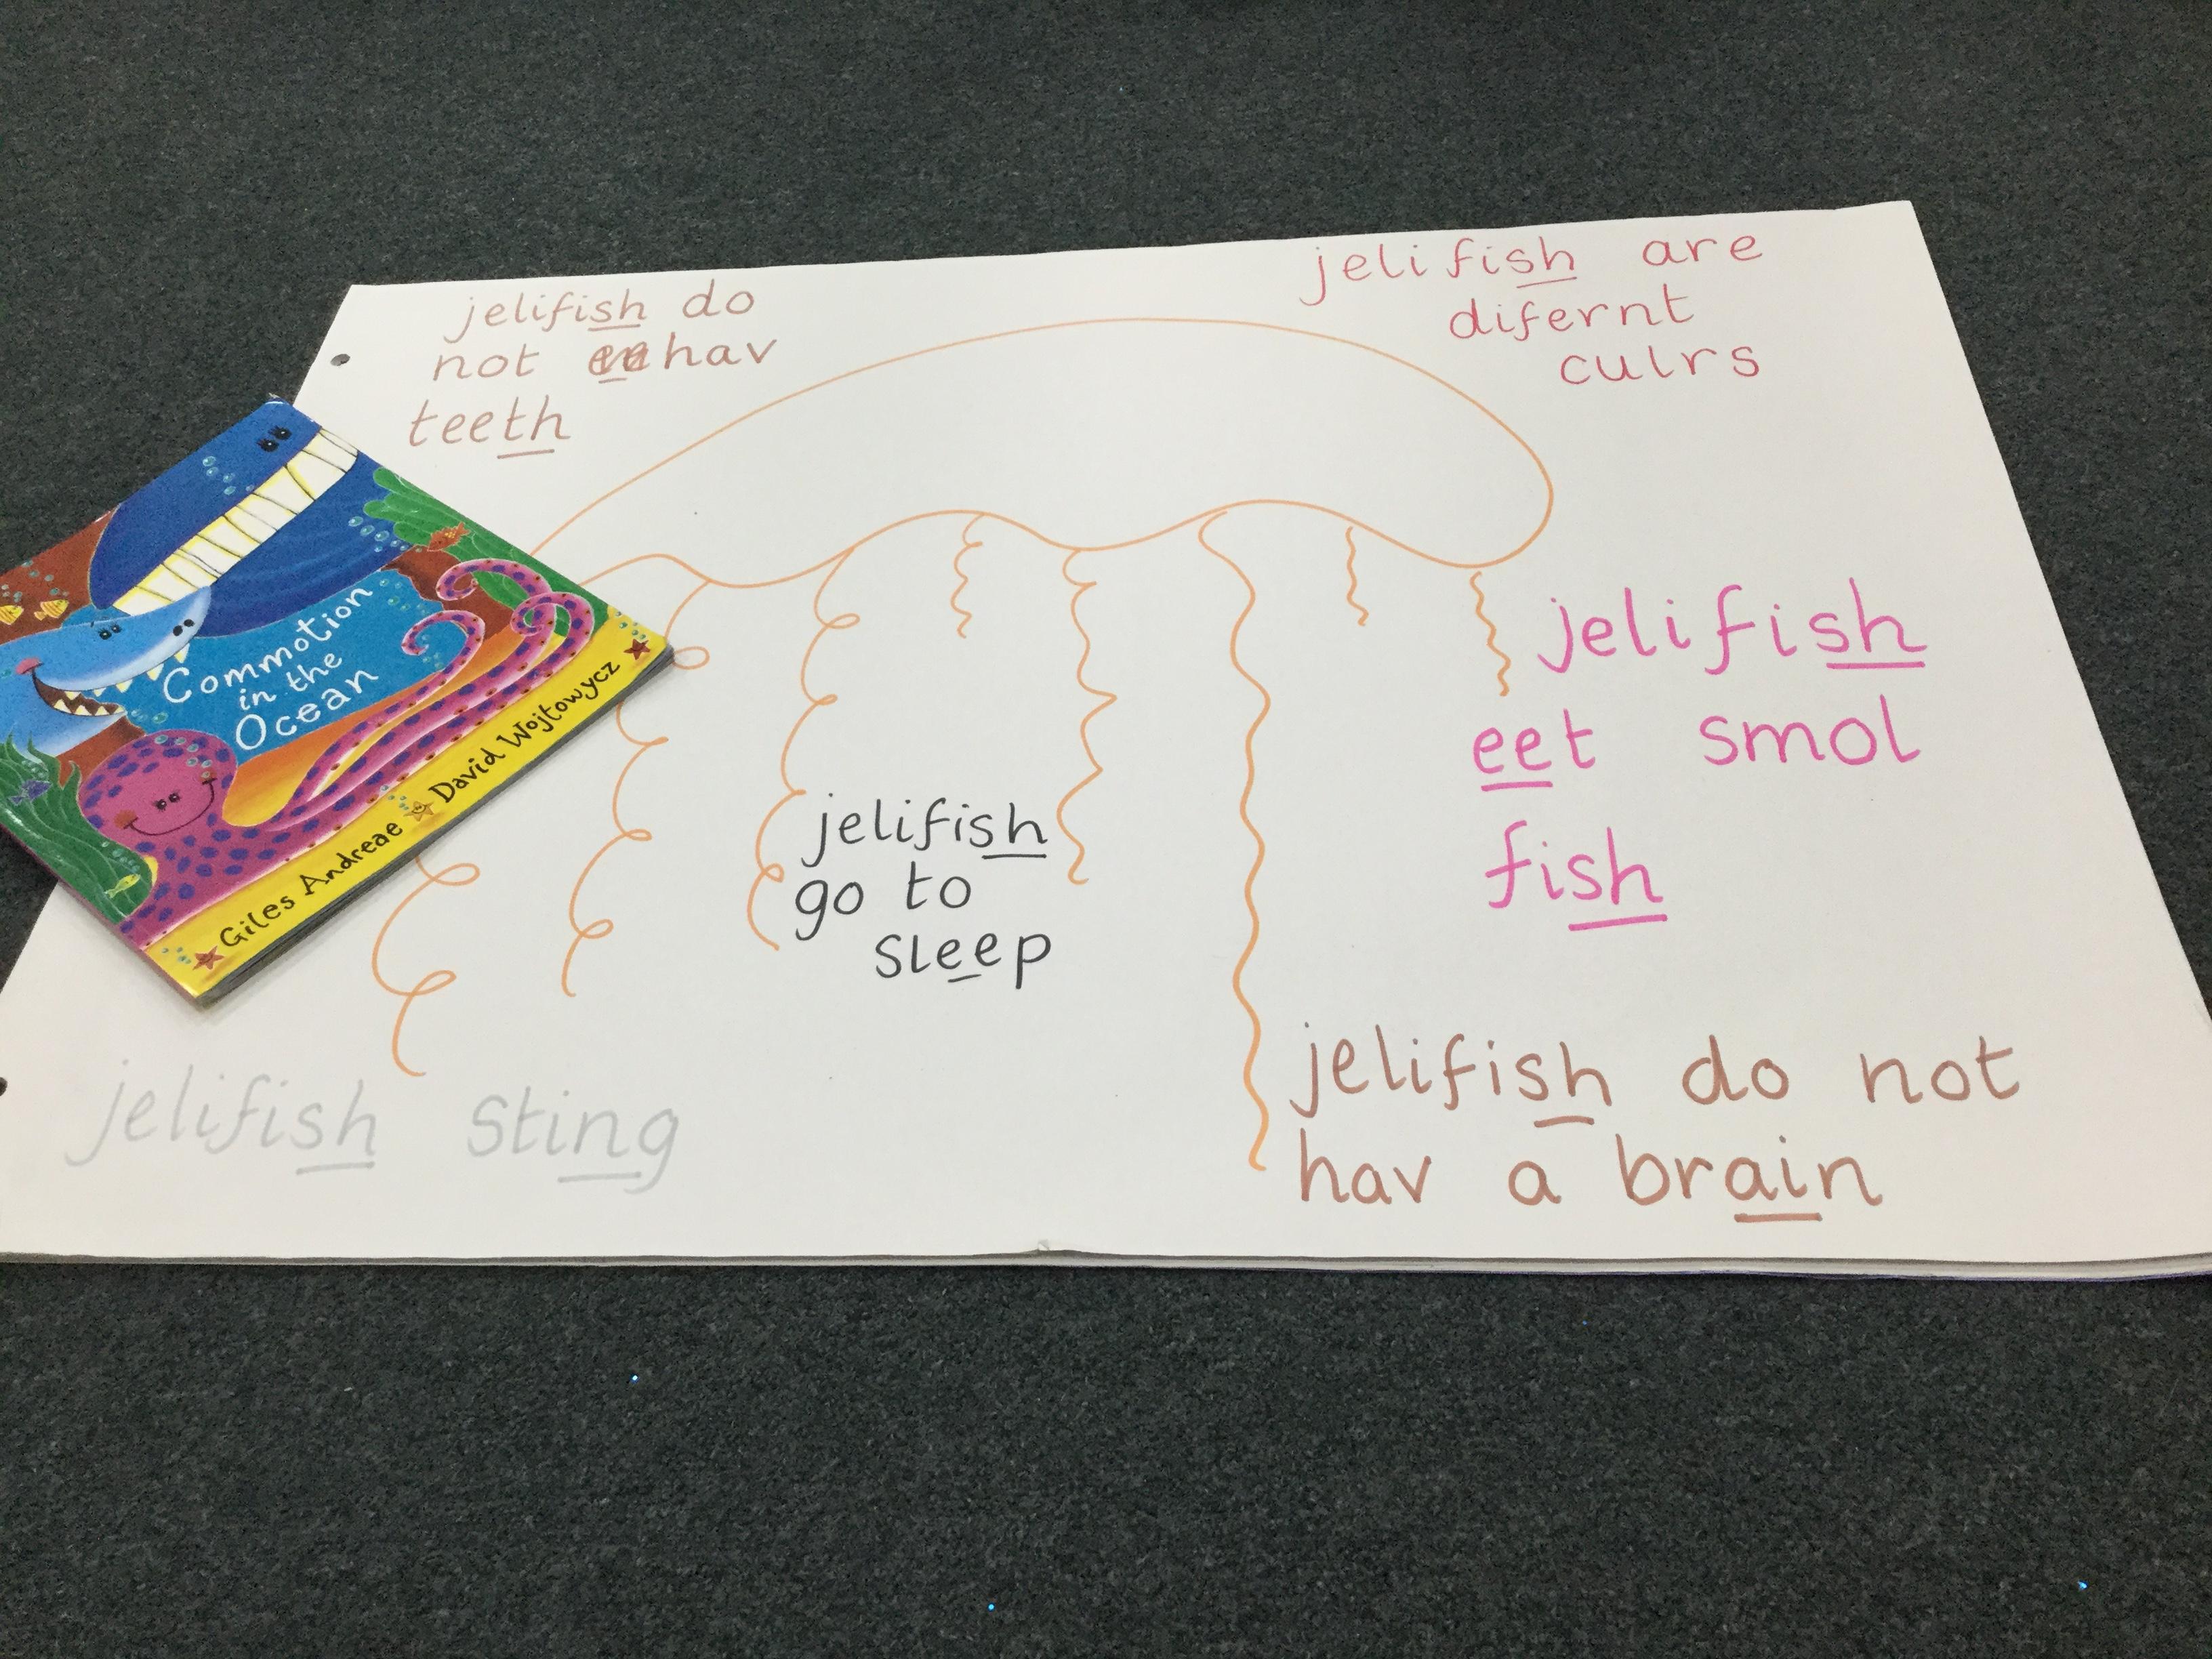 jelifish do
not hav
teeth
jelifish are
difernt
culrs
Commotion
in the
Ocean
Giles Andreae David Wojtowycz
jelifish
eet smol
fish
jelifish
go to
sleep
jelifish sting
jelifish do not
hav a brain